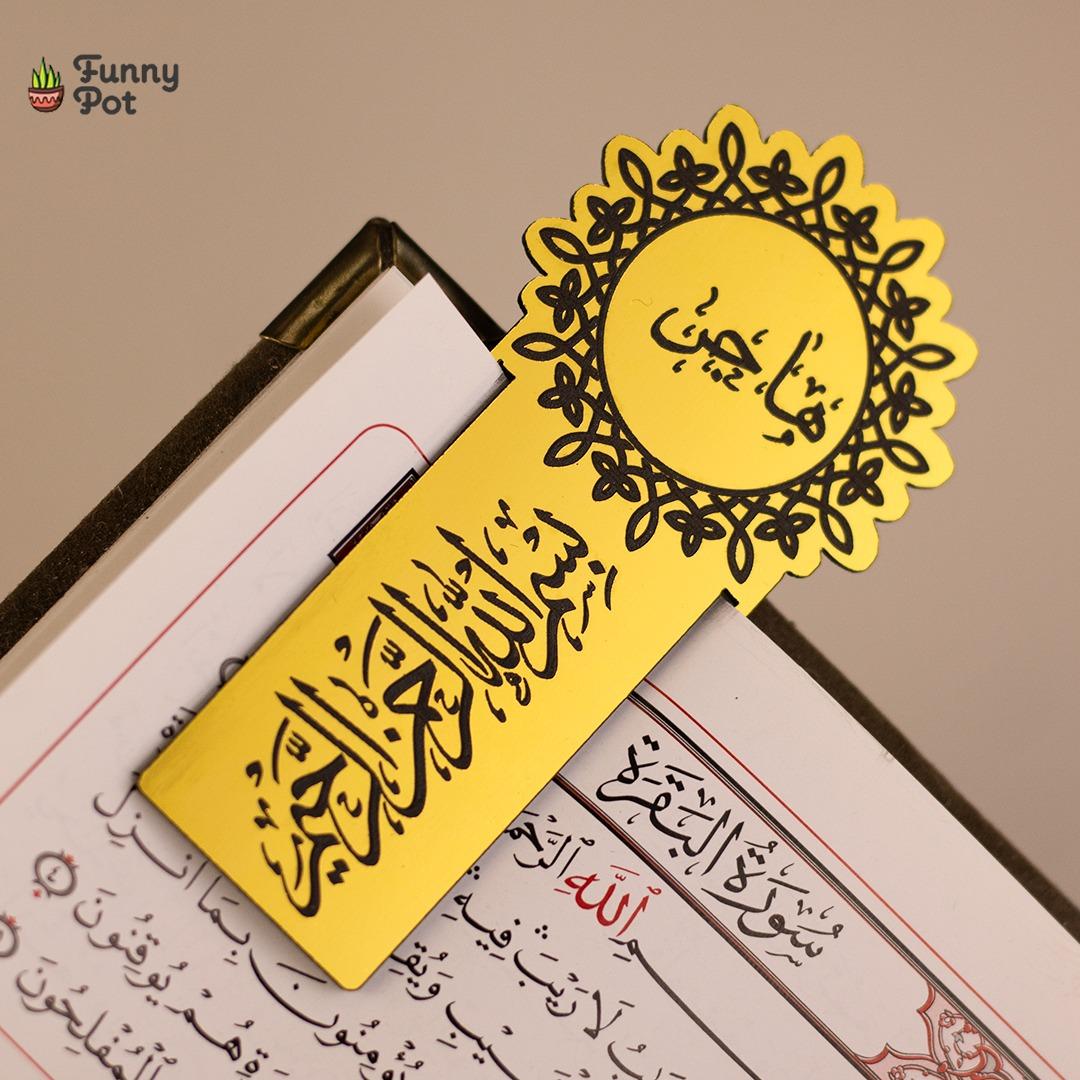 Funny
Pot
هَاجَر
بِسْمِ اللَّهِ الرَّحْمَنِ الرَّحِيمِ
سُورَةُ الْبَقَرَةِ
ٱللَّهِ
لَا رَيْبَ فِيهِ
يُؤْمِنُونَ بِمَا أُنزِلَ
هُمْ يُوقِنُونَ ٤
ٱلْمُفْلِحُونَ